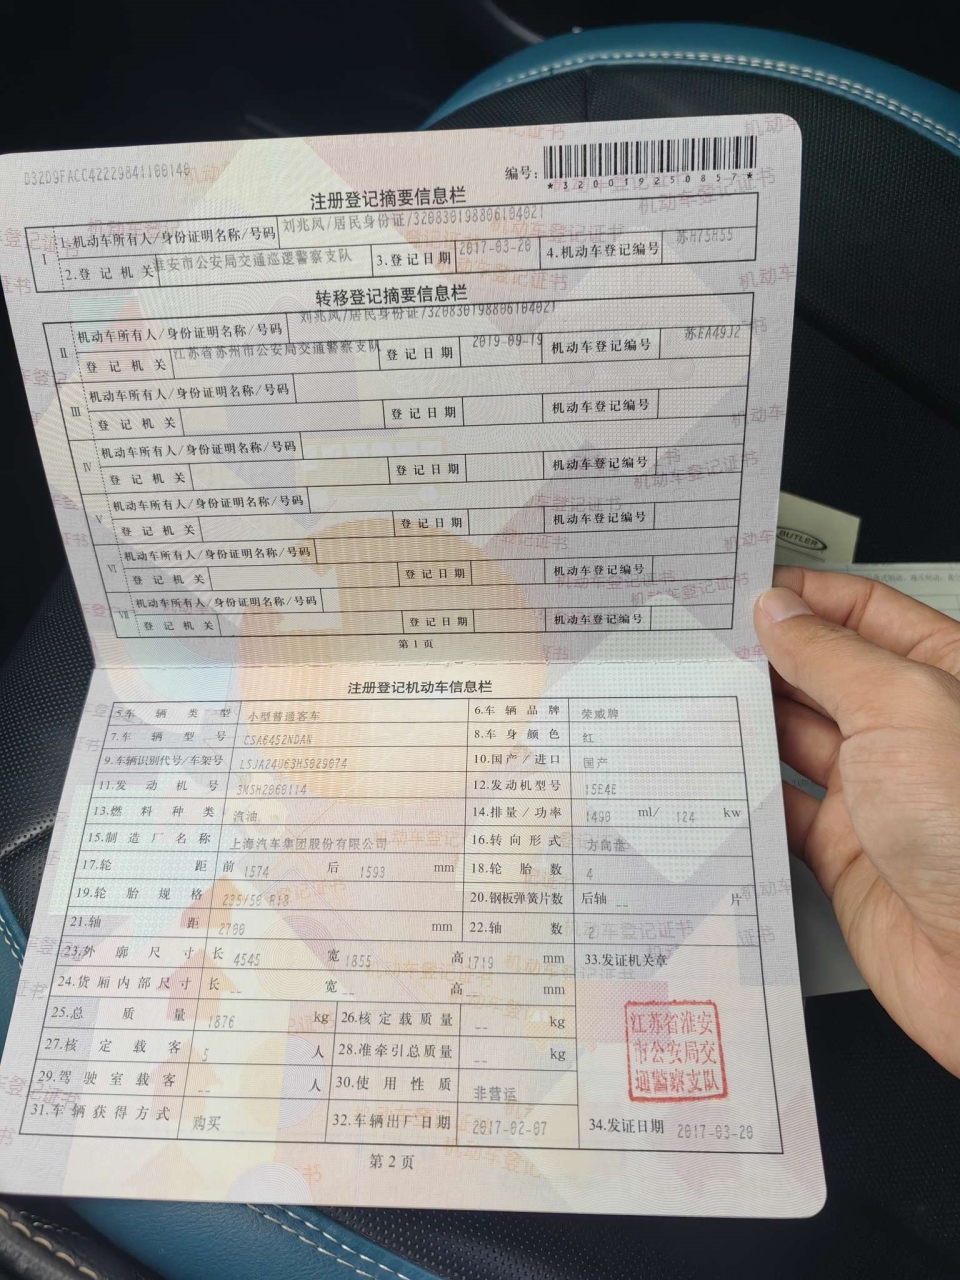 D32D9FACC42229841100140
编号:
*320019250857*
注册登记摘要信息栏
I 1.机动车所有人/身份证明名称/号码 刘兆凤/居民身份证/320830198806104021
2.登记机关 淮安市公安局交通巡逻警察支队 3.登记日期 2017-03-20 4.机动车登记编号 苏H75H55
转移登记摘要信息栏
II 机动车所有人/身份证明名称/号码 刘兆凤/居民身份证/320830198806104021
登记机关 江苏省苏州市公安局交通警察支队 登记日期 2019-09-19 机动车登记编号 苏EA49J2
III 机动车所有人/身份证明名称/号码
登记机关 登记日期 机动车登记编号
IV 机动车所有人/身份证明名称/号码
登记机关 登记日期 机动车登记编号
V 机动车所有人/身份证明名称/号码
登记机关 登记日期 机动车登记编号
VI 机动车所有人/身份证明名称/号码
登记机关 登记日期 机动车登记编号
VII 机动车所有人/身份证明名称/号码
登记机关 登记日期 机动车登记编号
第1页
注册登记机动车信息栏
5.车辆类型 小型普通客车 6.车辆品牌 荣威牌
7.车辆型号 CSA6452NDAN 8.车身颜色 红
9.车辆识别代号/车架号 LSJA24U63HS029074 10.国产/进口 国产
11.发动机号 3MSH2060114 12.发动机型号 15E4E
13.燃料种类 汽油 14.排量/功率 1490 ml/ 124 kw
15.制造厂名称 上海汽车集团股份有限公司 16.转向形式 方向盘
17.轮距 前 1574 后 1593 mm 18.轮胎数 4
19.轮胎规格 235/50 R18 20.钢板弹簧片数 后轴 -- 片
21.轴距 2700 mm 22.轴数 2
23.外廓尺寸 长 4545 宽 1855 高 1719 mm 33.发证机关章
24.货厢内部尺寸 长 -- 宽 -- 高 -- mm
25.总质量 1876 kg 26.核定载质量 -- kg
27.核定载客 5 人 28.准牵引总质量 -- kg
29.驾驶室载客 -- 人 30.使用性质 非营运
31.车辆获得方式 购买 32.车辆出厂日期 2017-02-07 34.发证日期 2017-03-20
江苏省淮安
市公安局交
通警察支队
第2页
BUTLER